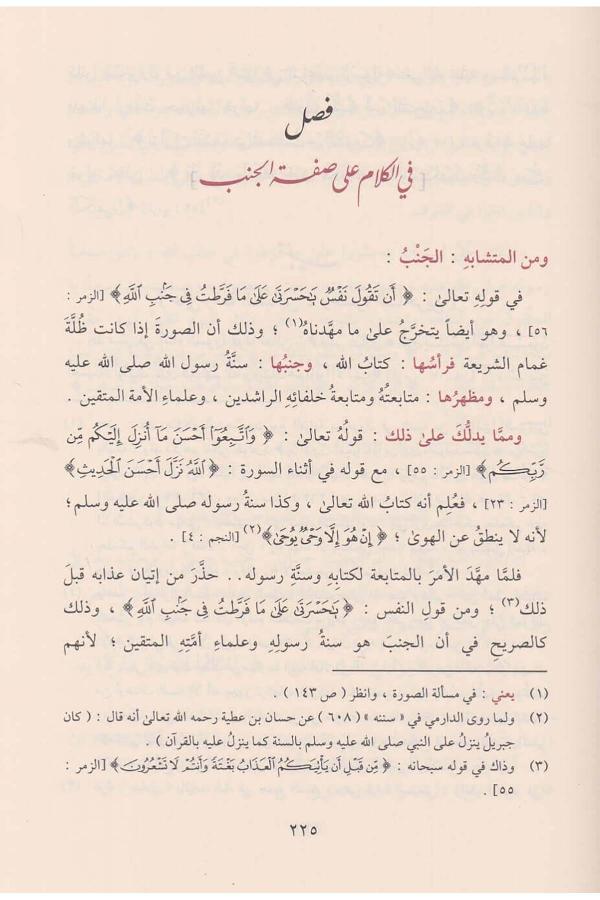 فصل
[في الكلام على صفة الجنب]
ومن المتشابهِ : الجَنْبُ :
في قولِهِ تعالىٰ : ﴿ أَن تَقُولَ نَفْسٌ يَٰحَسْرَتَىٰ عَلَىٰ مَا فَرَّطتُ فِى جَنۢبِ ٱللَّهِ ﴾ [الزمر :
٥٦] ، وهو أيضاً يتخرَّجُ علىٰ ما مهَّدناهُ(١) ؛ وذلك أن الصورةَ إذا كانت ظُلَّةَ
غمامِ الشريعة فرأسُها : كتابُ الله ، وجنبُها : سنَّةُ رسول الله صلى الله عليه
وسلم ، ومظهرُها : متابعتُهُ ومتابعةُ خلفائِهِ الراشدين ، وعلماءِ الأمة المتقين .
وممَّا يدلُّكَ علىٰ ذلك : قولُهُ تعالىٰ : ﴿ وَٱتَّبِعُوٓا۟ أَحْسَنَ مَآ أُنزِلَ إِلَيْكُم مِّن
رَّبِّكُم﴾ [الزمر : ٥٥] ، مع قوله في أثناء السورة : ﴿ٱللَّهُ نَزَّلَ أَحْسَنَ ٱلْحَدِيثِ﴾
[الزمر : ٢٣] ، فعُلِم أنه كتابُ الله تعالىٰ ، وكذا سنةُ رسوله صلى الله عليه وسلم ؛
لأنه لا ينطقُ عن الهوىٰ ؛ ﴿ إِنْ هُوَ إِلَّا وَحْىٌ يُوحَىٰ﴾(٢) [النجم : ٤] .
فلمَّا مهَّدَ الأمرَ بالمتابعة لكتابِهِ وسنَّةِ رسوله.. حذَّرَ من إتيان عذابه قبلَ
ذلك(٣) ؛ ومن قولِ النفس : ﴿ يَٰحَسْرَتَىٰ عَلَىٰ مَا فَرَّطتُ فِى جَنۢبِ ٱللَّهِ ﴾ ، وذلك
كالصريحِ في أن الجنبَ هو سنةُ رسولِهِ وعلماءِ أمَّتِهِ المتقين ؛ لأنهم
(١) يعني : في مسألة الصورة ، وانظر ( ص ١٤٣ ) .
(٢) ولما روى الدارمي في « سننه » ( ٦٠٨ ) عن حسان بن عطية رحمه الله تعالىٰ أنه قال : ( كان
جبريلُ ينزلُ على النبي صلى الله عليه وسلم بالسنة كما ينزلُ عليه بالقرآن ) .
(٣) وذاك في قوله سبحانه : ﴿ مِّن قَبْلِ أَن يَأْتِيَكُمُ ٱلْعَذَابُ بَغْتَةً وَأَنتُمْ لَا تَشْعُرُونَ﴾ [الزمر :
٥٥] .
٢٢٥